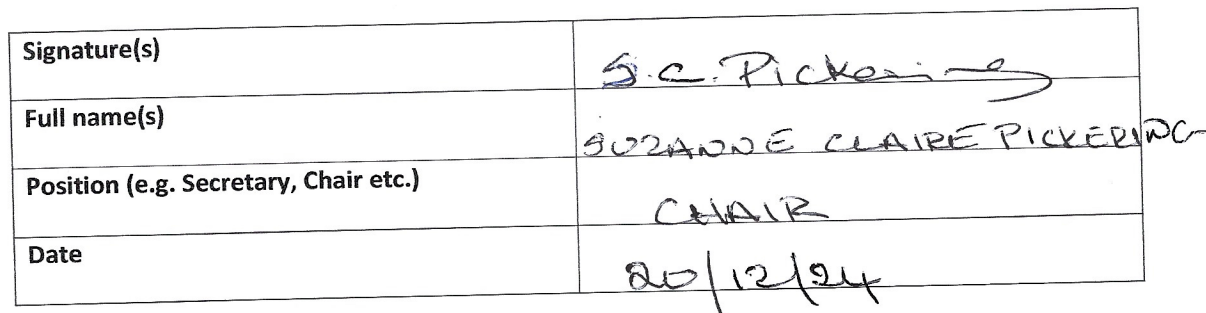 Signature(s) S.C. Pickering
Full name(s) SUZANNE CLAIRE PICKERING
Position (e.g. Secretary, Chair etc.) CHAIR
Date 20/12/24